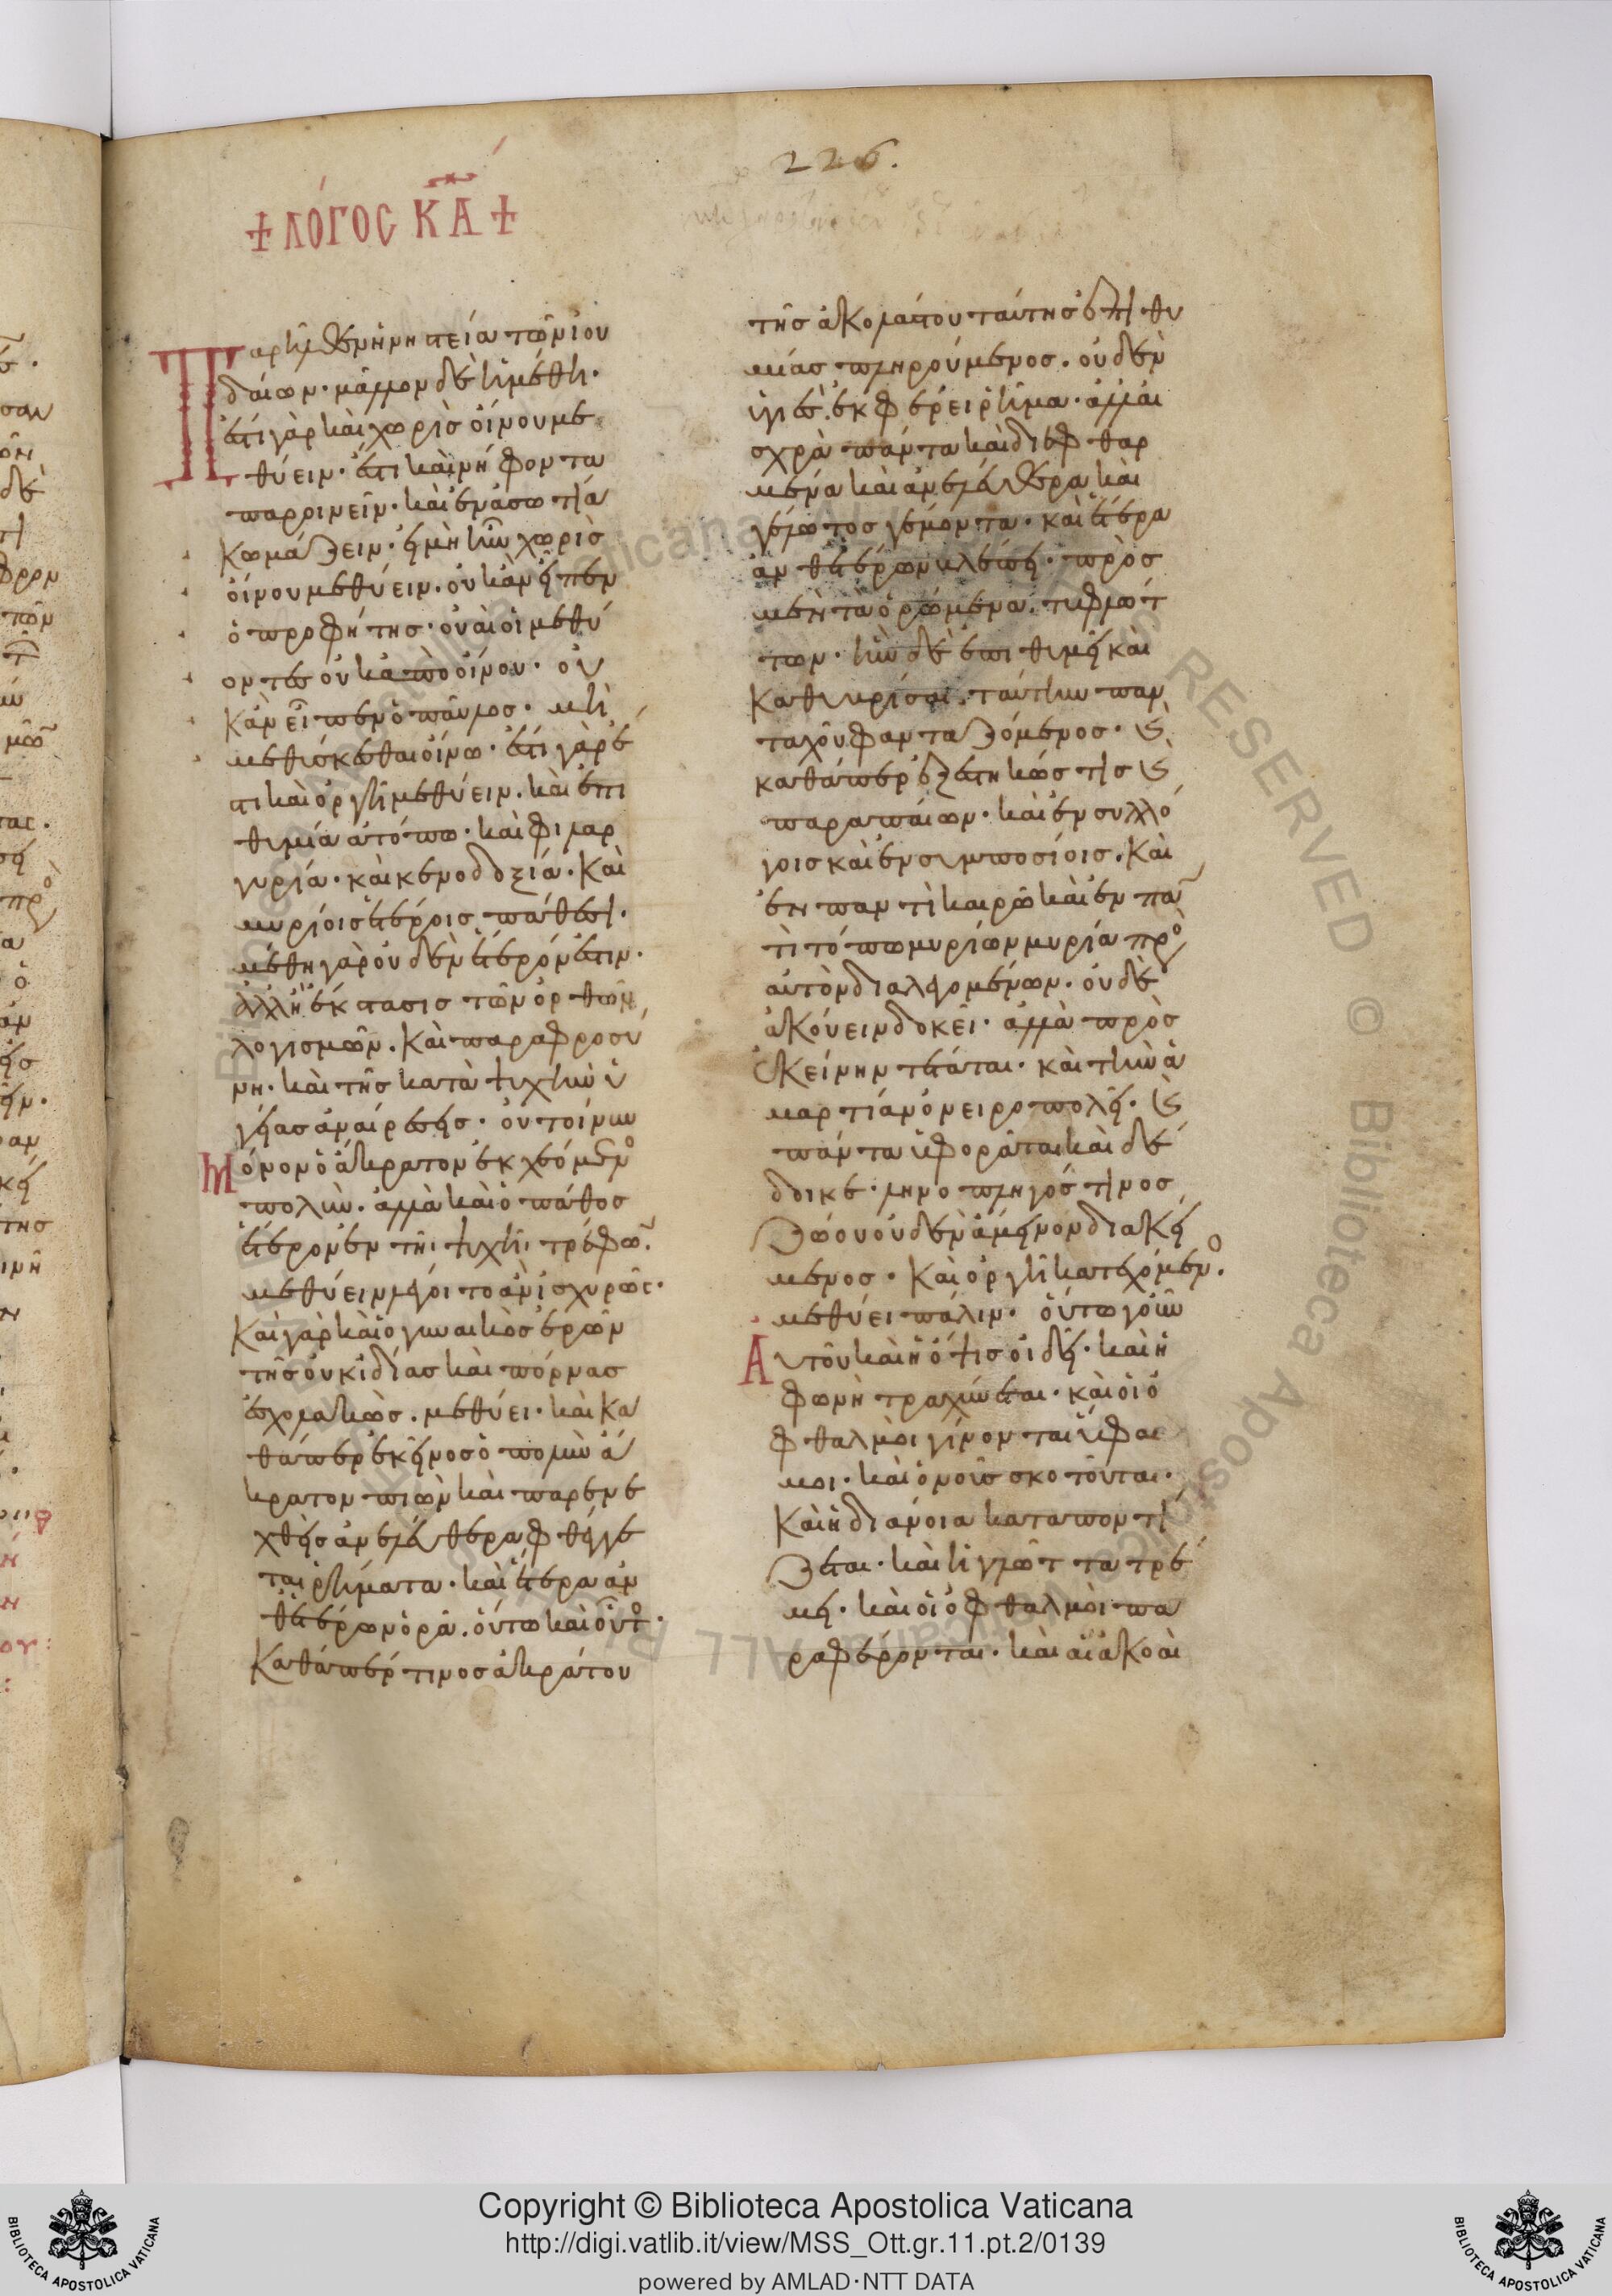 226.
+ ΛΌΓΟΣ ΚΑ +
Παρῆλθεν ἡ νηστεία τῶν ἰου
δαίων· μᾶλλον δὲ ἡ μέθη·
ἔστι γὰρ καὶ χωρὶς οἴνου με
θύειν· ἔστι καὶ νήφοντα
παροινεῖν· καὶ ἐν ἀσωτία
κωμάζειν· εἰ μὴ ἦν χωρὶς
οἴνου μεθύειν. οὐκ ἂν εἶπεν
ὁ προφήτης· οὐαὶ οἱ μεθύ
οντες οὐκ ἀπὸ οἴνου· οὐ
κἂν εἶπεν ὁ παῦλος· μὴ
μεθύσκεσθαι οἴνω· ἔστι γὰρ ἔ
στι καὶ ὀργῆ μεθύειν. καὶ ἐπι
θυμία ἀτόπω· καὶ φιλαρ
γυρία· καὶ κενοδοξία· Καὶ
μυρίοις ἑτέροις πάθεσι·
μέθη γὰρ οὐδὲν ἕτερόν ἐστιν·
ἀλλ' ἢ ἔκστασις τῶν ὀρθῶν
λογισμῶν. Καὶ παραφροσύ
νη· καὶ τῆς κατὰ ψυχὴν ὑ
γείας ἀναίρεσης· οὐ τοίνυν
Μόνον ὁ ἄκρατον ἐκχεόμενο
πολὺν. ἀλλὰ καὶ ὁ πάθος
ἕτερον ἐν τῆι ψυχῆι τρέφων
μεθύειν λέγοιτο ἂν ἰσχυρῶς·
Καὶ γὰρ καὶ ὁ γυναικὸς ἐρῶν
τῆς οὐκ ἰδίας καὶ πόρναις
ἐσχολακὼς. μεθύει· καὶ κα
θάπερ ἐκεῖνος ὁ πολὺν ἄ
κρατον πιὼν καὶ παρενε
χθεὶς ἀνελεύθερα φθέγγε
ται ῥήματα· καὶ ἕτερα ἀν
θ' ἑτέρων ὁρᾶ. οὕτω καὶ οὗτο·
Καθάπερ τινος ἀκράτου
τῆς ἀκολάστου ταύτης ἐπιθυ
μίας πληρούμενος. οὐδὲν
ὑγιὲς ἐκφέρει ῥῆμα· ἀλλ' αἰ
σχρὰ πάντα καὶ διεφθαρ
μένα καὶ ἀνελεύθερα καὶ
γέλωτος γέμοντα· καὶ ἕτερα
ἀνθ' ἑτέρων βλέπει· πρὸς
μὲν τὰ ὁρώμενα. τυφλώτ
των· ἣν δὲ ἐπιθυμεῖ καὶ
καθυβρίσαι. ταύτην παν
ταχοῦ φανταζόμενος· καὶ
καθάπερ ἐξεστηκώς τις καὶ
παραπαίων· καὶ ἐν συλλό
γοις καὶ ἐν συμποσίοις. Καὶ
ἐν παντὶ καιρῶ καὶ ἐν παν
τὶ τόπω μυρίων μυρία πρὸ
αὐτὸν διαλεγομένων. οὐδὲ
ἀκούειν δοκεῖ· ἀλλὰ πρὸς
ἐκείνην τέταται· καὶ τὴν ἁ
μαρτίαν ὀνειροπολεῖ· καὶ
πάντα ὑφορᾶται καὶ δέ
δοικε· θηρὸς πληγός τινος
ζώου οὐδὲν ἄμεινον διακεί
μενος· Καὶ ὀργῆ κατεχόμενο.
μεθύει πάλιν· οὕτω γοῦν
Αὐτοῦ καὶ ἡ ὄψις οἰδεῖ· καὶ ἡ
φωνὴ τραχύνεται· καὶ οἱ ὀ
φθαλμοὶ γίνονται ὕφαι
μοι· καὶ ὁ νοῦς σκοτοῦται·
Καὶ ἡ διάνοια καταποντί
ζεται· καὶ ἡ γλῶττα τρέ
μει· καὶ οἱ ὀφθαλμοὶ πα
ραφέρονται· καὶ αἱ ἀκοαὶ
Copyright © Biblioteca Apostolica Vaticana
http://digi.vatlib.it/view/MSS_Ott.gr.11.pt.2/0139
powered by AMLAD·NTT DATA
BIBLIOTECA APOSTOLICA VATICANA
BIBLIOTECA APOSTOLICA VATICANA